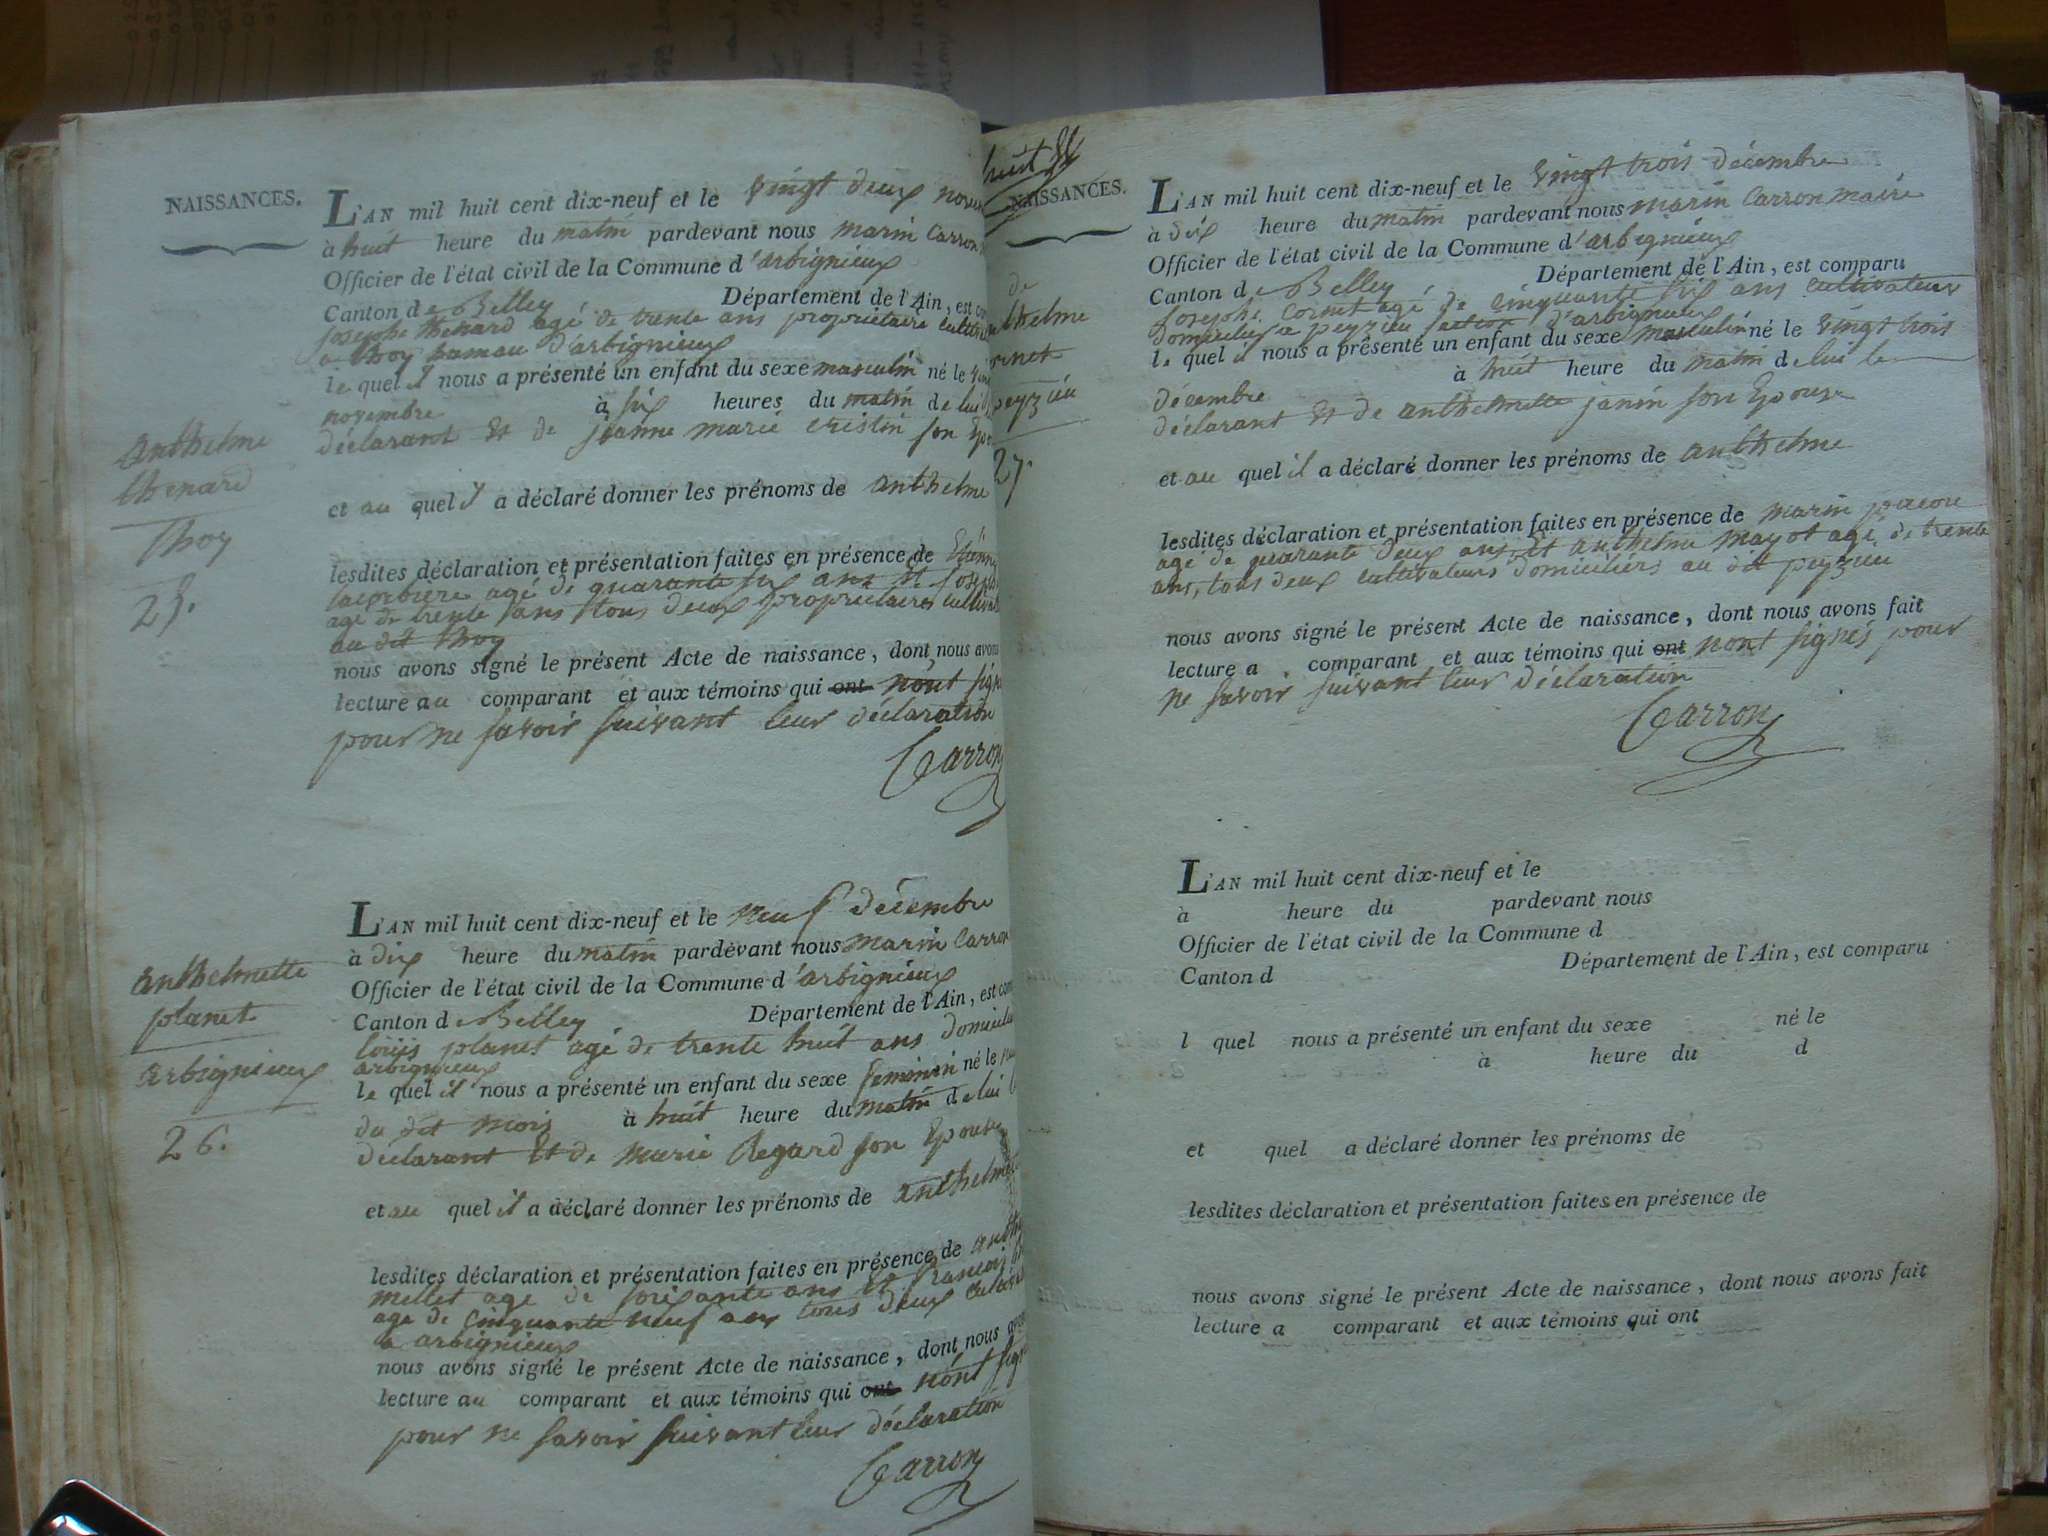 NAISSANCES.
L'AN mil huit cent dix-neuf et le vingt deux
à huit heure du matin pardevant nous marin Carron
Officier de l'état civil de la Commune d'arbignieux
Canton de Belley Département de l'Ain, est
josephe thenard agé de trente ans propriétaire
a thoy hamau d'arbignieux
le quel il nous a présenté un enfant du sexe masculin né le
novembre à six heures du matin de lui
déclarant et de jeanne marie cristin son
et au quel il a déclaré donner les prénoms de anthelme
lesdites déclaration et présentation faites en présence de
agé de quarante six ans et
agé de trente ans tous deux propriétaires
au dit thoy
nous avons signé le présent Acte de naissance, dont nous avons
lecture au comparant et aux témoins qui ont n'ont
pour ne savoir suivant leur déclaration
Carron
anthelme
thenard
thoy
25.
L'AN mil huit cent dix-neuf et le neuf décembre
à dix heure du matin pardevant nous marin Carron
Officier de l'état civil de la Commune d'arbignieux
Canton de Belley Département de l'Ain, est
loüis planet agé de trente huit ans
arbignieux
le quel il nous a présenté un enfant du sexe feminin né le
du dit mois à huit heure du matin de lui
déclarant et de marie Regard son Epouse
et au quel il a déclaré donner les prénoms de
lesdites déclaration et présentation faites en présence de
mellet agé de soixante ans et francois
agé de cinquante neuf ans tous deux
a arbignieux
nous avons signé le présent Acte de naissance, dont nous
lecture au comparant et aux témoins qui ont n'ont
pour ne savoir suivant leur déclaration
Carron
anthelmette
planet
arbignieux
26.
huit
NAISSANCES.
L'AN mil huit cent dix-neuf et le vingt trois décembre
à dix heure du matin pardevant nous marin Carron maire
Officier de l'état civil de la Commune d'arbignieux
Canton de Belley Département de l'Ain, est comparu
josephe Cornet agé de cinquante six ans cultivateur
domicilié a peyzieu section d'arbignieux
le quel il nous a présenté un enfant du sexe masculin né le vingt trois
décembre à huit heure du matin de lui le
déclarant et de anthelmette janin son Epouse
et au quel il a déclaré donner les prénoms de anthelme
lesdites déclaration et présentation faites en présence de marin
agé de quarante deux ans, et anthelme mayot agé de trente
ans, tous deux cultivateurs domiciliés au dit peyzieu
nous avons signé le présent Acte de naissance, dont nous avons fait
lecture a comparant et aux témoins qui ont n'ont signés pour
ne savoir suivant leur déclaration
Carron
de
peyzieu
27.
L'AN mil huit cent dix-neuf et le
à heure du pardevant nous
Officier de l'état civil de la Commune d
Canton d Département de l'Ain, est comparu
l quel nous a présenté un enfant du sexe né le
à heure du d
et quel a déclaré donner les prénoms de
lesdites déclaration et présentation faites en présence de
nous avons signé le présent Acte de naissance, dont nous avons fait
lecture a comparant et aux témoins qui ont